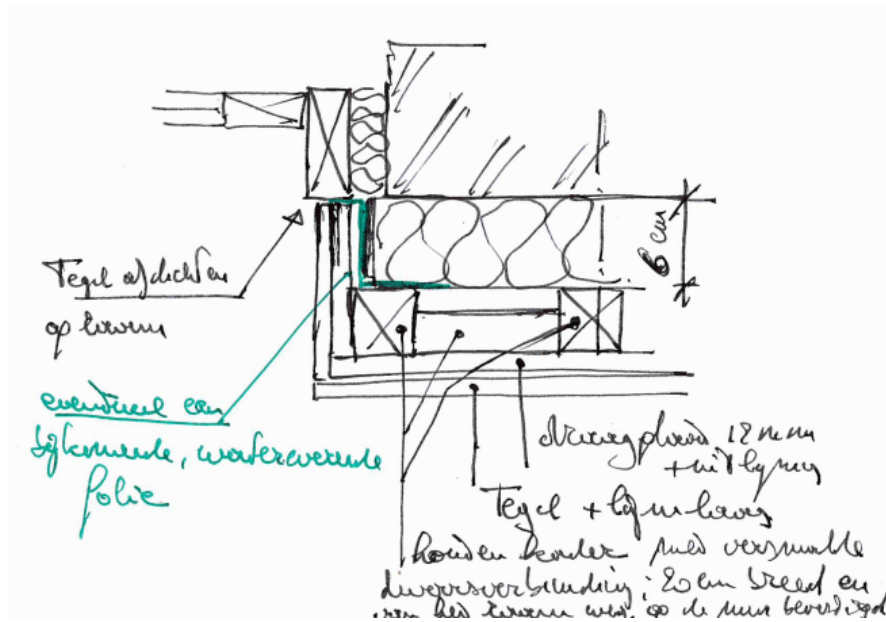 6 cm
Tegel afdichten
op kraam
eventueel een
bijkomende, waterwerende
folie
draagplaat 12 mm
+ uitlijnen
Tegel + lijmlaag
houten kader met versmalde
dwarsverbinding : 20 cm breed en
op de muur bevestigd